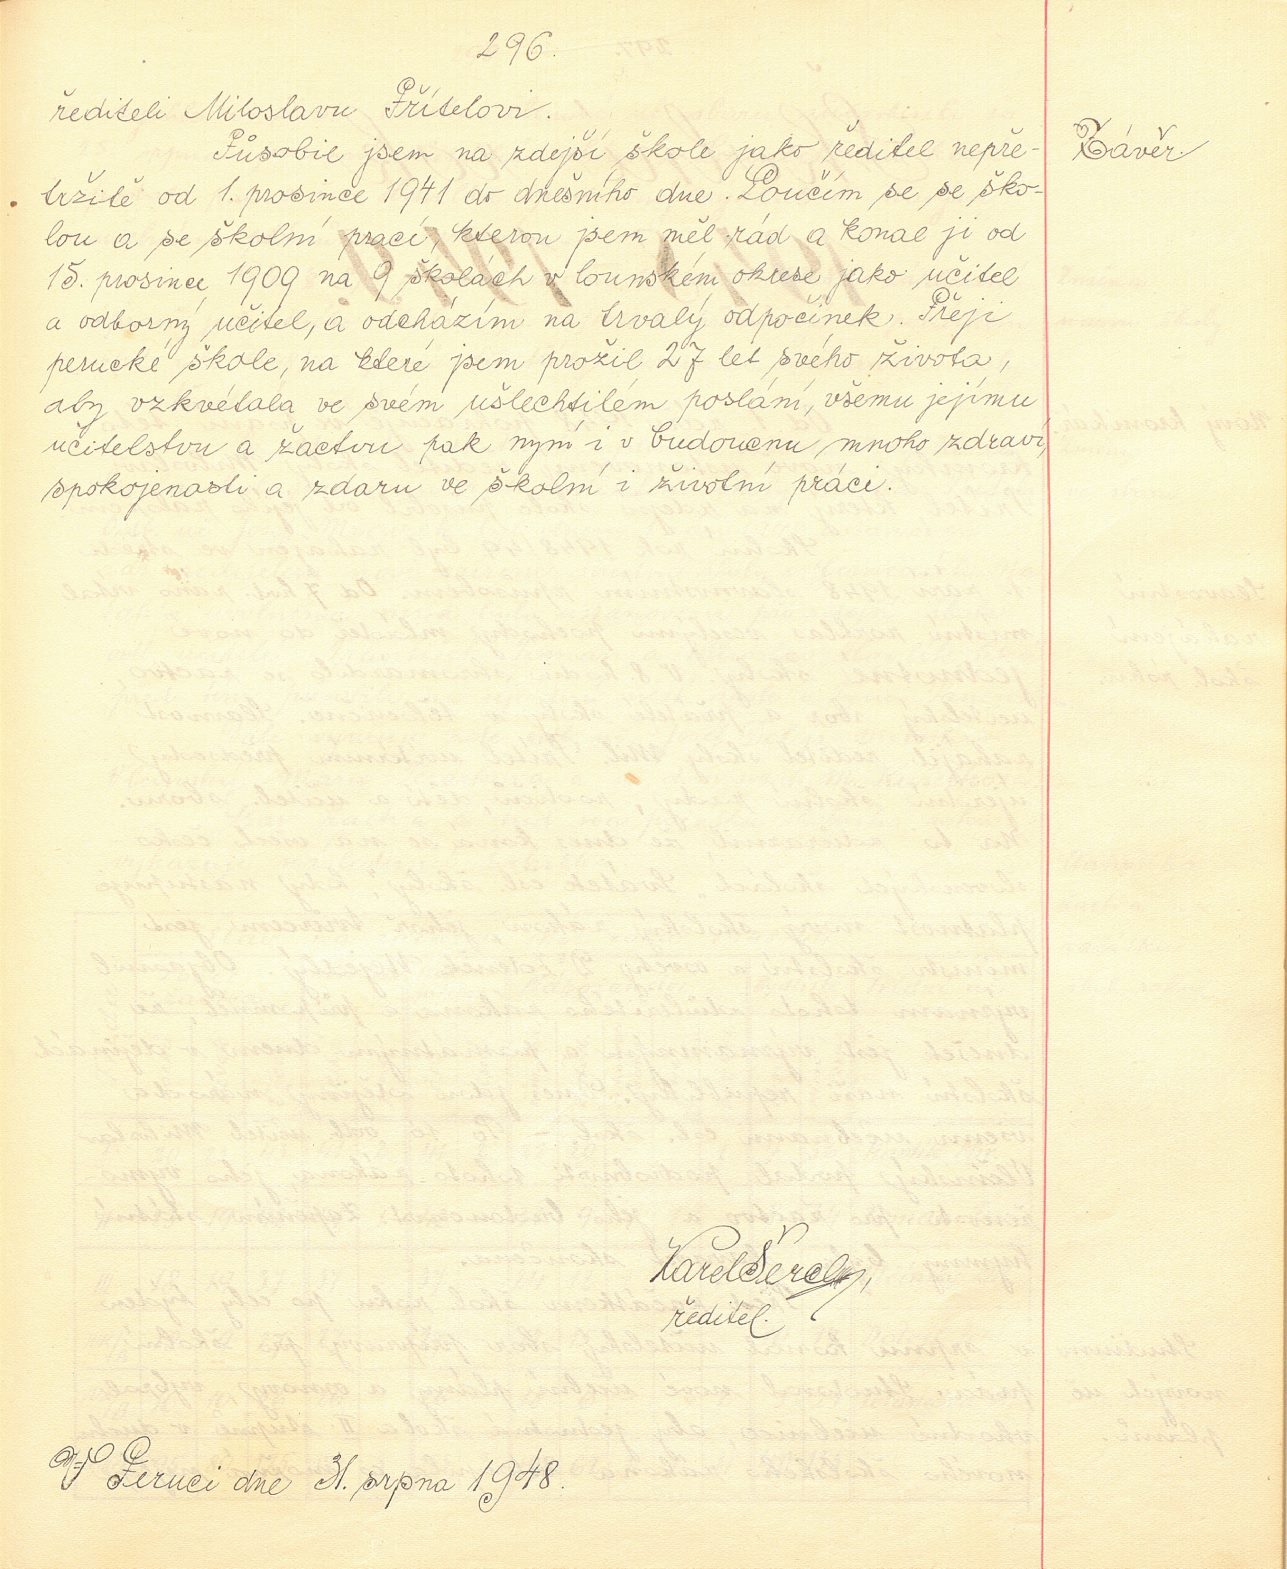 296.
řediteli Miloslavu Přítelovi.
Působil jsem na zdejší škole jako ředitel nepře-
Závěr.
tržitě od 1. prosince 1941 do dnešního dne. Loučím se se ško-
lou a se školní prací, kterou jsem měl rád a konal ji od
15. prosince 1909 na 9 školách v lounském okrese jako učitel
a odborný učitel, a odcházím na trvalý odpočinek. Přeji
perucké škole, na které jsem prožil 27 let svého života,
aby vzkvétala ve svém ušlechtilém poslání, všemu jejímu
učitelstvu a žactvu pak nyní i v budoucnu mnoho zdraví,
spokojenosti a zdaru ve školní i životní práci.
Karel
ředitel.
V Peruci dne 31. srpna 1948.